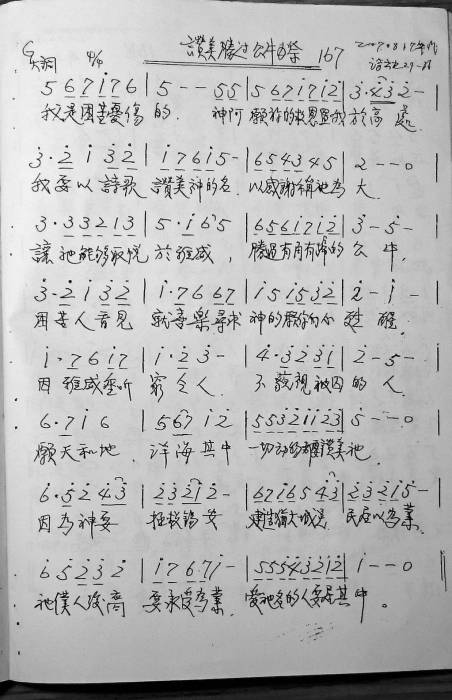 讚美勝过公牛为祭 167
G大调 4/4
2007.8.17
5 6 7 1 7 6 | 5 - - 5 5 | 5 6 7 1 7 1 2 | 3 · 4 3 2 - |
我是困苦憂傷的. 神阿 願你的救恩置我於高處.
3 · 2 1 3 2 | 1 7 6 1 5 - | 6 5 4 3 4 5 | 2 - - 0
我要以詩歌 讚美神的名. 以感謝稱祂為大.
3 · 3 3 2 1 3 | 5 · 1 6 5 | 6 5 6 1 7 1 2 | 3 - 5 - |
讓祂能够 悦於雅威, 勝過有角有蹄的公牛,
3 · 2 1 3 2 | 1 · 7 6 6 7 | 1 5 1 5 3 2 | 2 - 1 - |
困苦人看見 就喜樂尋求 神的願你们心甦醒.
1 · 7 6 1 7 | 1 · 2 3 - | 4 · 3 2 3 1 | 2 - 5 - |
因雅威垂听 窮乏人. 不藐視被囚的人
6 · 7 1 6 | 5 6 7 1 2 | 5 5 3 2 1 1 2 3 | 5 - - 0
願天和地. 洋海其中 一切动的都讚美祂.
6 · 5 2 4 3 | 2 3 2 1 2 - | 6 7 1 6 5 4 3 | 2 3 2 1 5 - |
因為神要 拯救锡安 建造犹大城邑 民居以為業.
6 5 2 3 2 | 1 7 6 · 7 1 - | 5 5 5 4 3 2 1 2 | 1 - - 0
祂僕人後裔 要承受為業. 愛祂名的人要居其中。